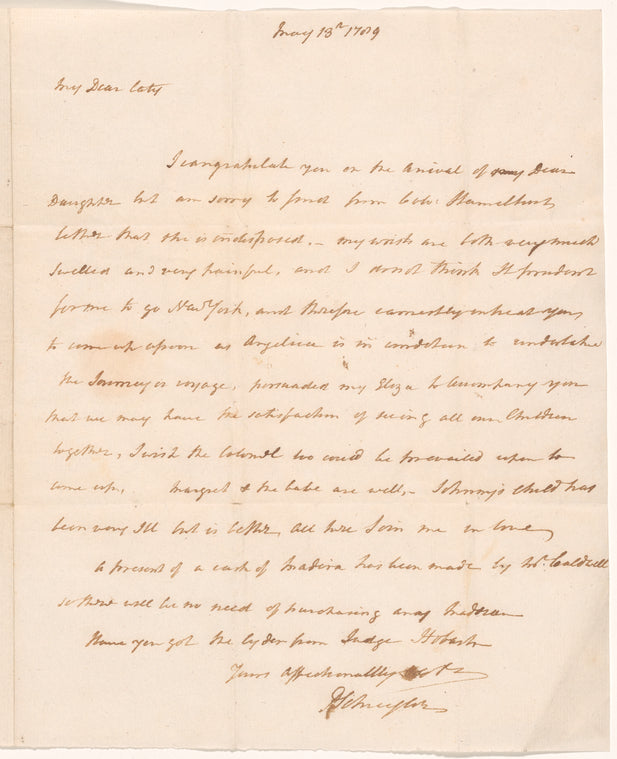 May 13th 1789
My Dear Caty
I congratulate you on the arrival of my Dear
Daughter but am sorry to find from Colo: Hamiltons
letter that she is indisposed, – my wrists are both very much
swelled and very painful, and I do not think It prudent
for me to go New York, and therefore earnestly intreat you
to come up as soon as Angelica is in condition to undertake
the Journey or voyage, persuade my Eliza to Accompany you
that we may have the satisfaction of seeing all our Children
together, I wish the Colonel too could be prevailed upon to
come up. Margret & the babe are well, – Johnny's child has
been very Ill but is better, all here Join me in love
a present of a cask of madeira has been made by Mr. Caldwell
so there will be no need of purchasing any
Have you got the cyder from Judge Hobart
Yours Affectionately &c
PSchuyler